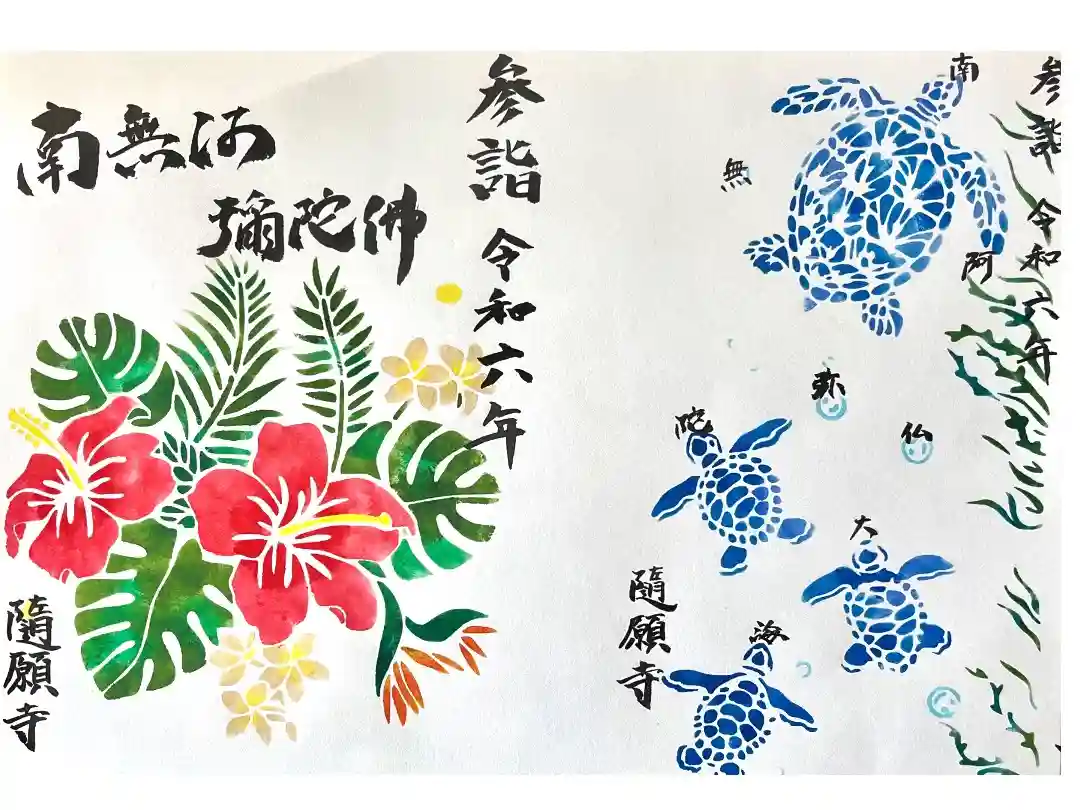 参詣 令和六年
南
無
阿
弥
陀
仏
大
海
隨願寺
参詣 令和六年
南無阿
彌陀佛
隨願寺